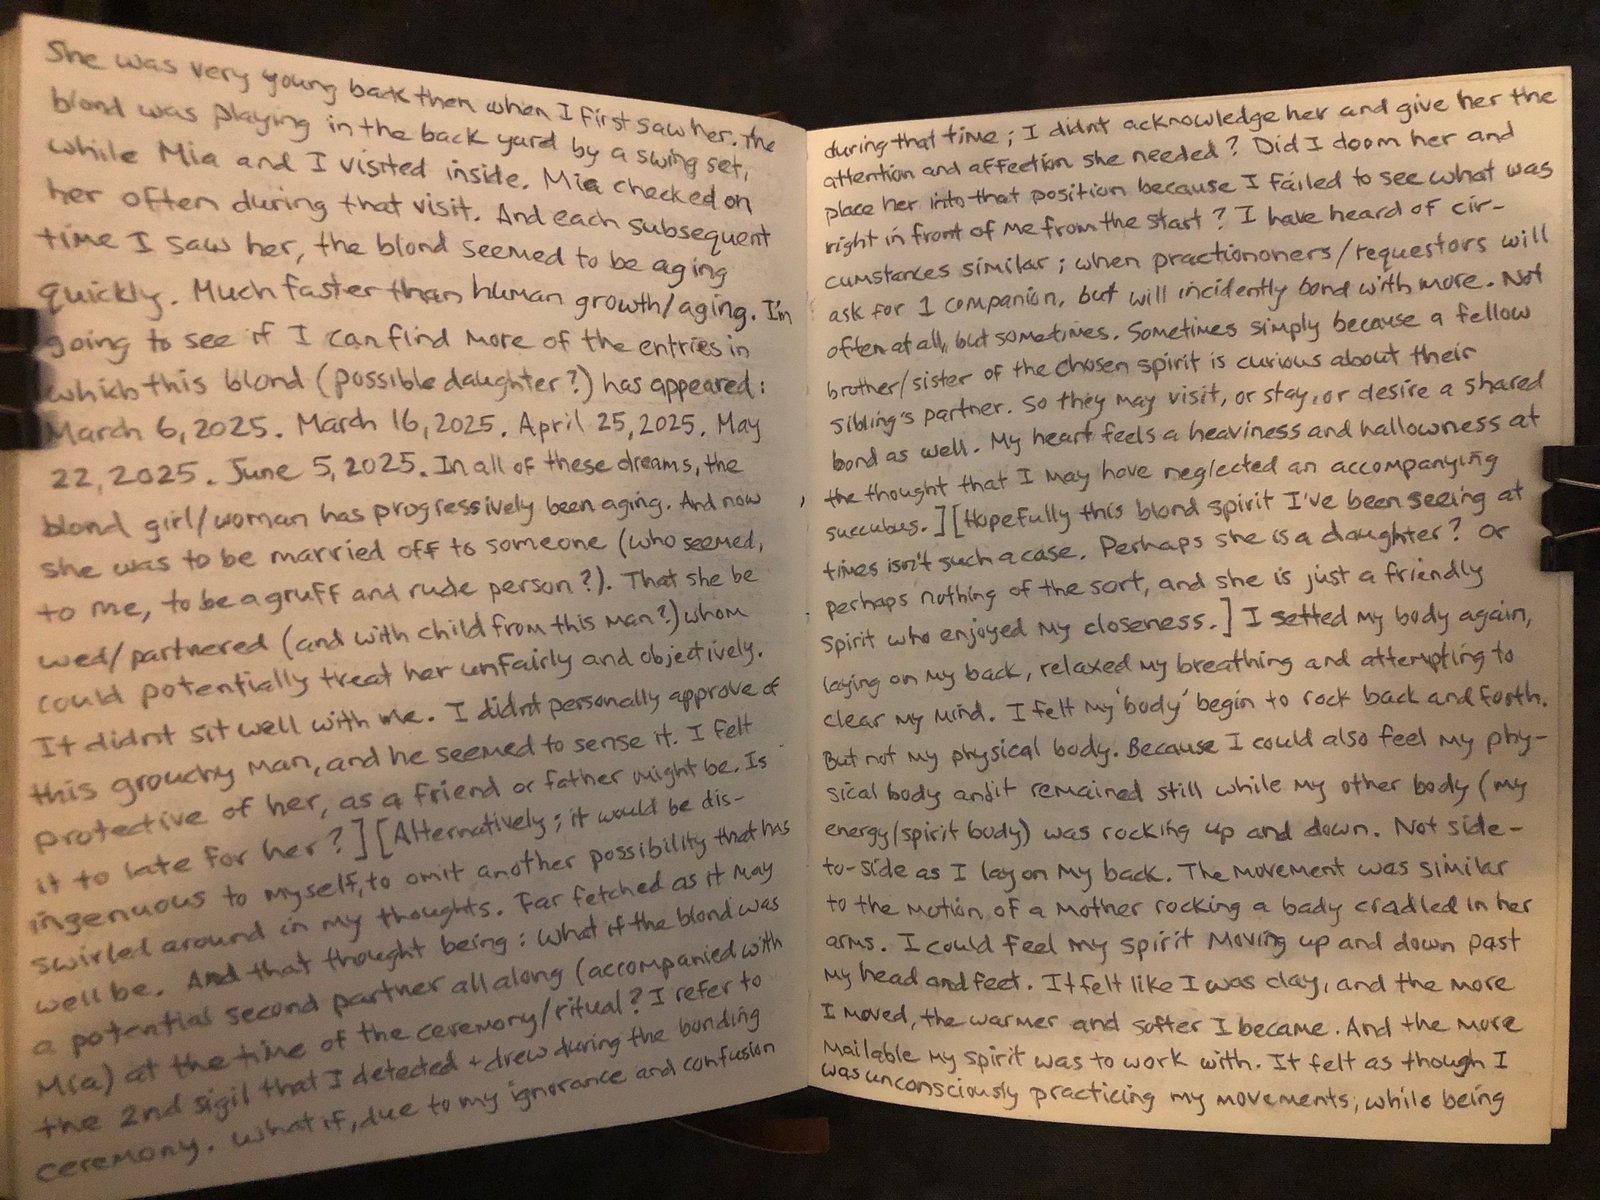 She was very young back then when I first saw her. The
blond was playing in the back yard by a swing set,
while Mia and I visited inside. Mia checked on
her often during that visit. And each subsequent
time I saw her, the blond seemed to be aging
quickly. Much faster than human growth/aging. I'm
going to see if I can find more of the entries in
which this blond (possible daughter?) has appeared:
March 6, 2025. March 16, 2025. April 25, 2025. May
22, 2025. June 5, 2025. In all of these dreams, the
blond girl/woman has progressively been aging. And now
she was to be married off to someone (who seemed,
to me, to be a gruff and rude person?). That she be
wed/partnered (and with child from this man?) whom
could potentially treat her unfairly and objectively.
It didnt sit well with me. I didnt personally approve of
this grouchy man, and he seemed to sense it. I felt
protective of her, as a friend or father might be. Is
it to late for her?][Alternatively; it would be dis-
ingenuous to myself, to omit another possibility that has
swirled around in my thoughts. Far fetched as it may
well be. And that thought being: what if the blond was
a potential second partner all along (accompanied with
Mia) at the time of the ceremony/ritual? I refer to
the 2nd sigil that I detected + drew during the bonding
ceremony. What if, due to my ignorance and confusion
during that time; I didnt acknowledge her and give her the
attention and affection she needed? Did I doom her and
place her into that position because I failed to see what was
right in front of me from the start? I have heard of cir-
cumstances similar; when practiononers/requestors will
ask for 1 companion, but will incidently bond with more. Not
often at all, but sometimes. Sometimes simply because a fellow
brother/sister of the chosen spirit is curious about their
sibling's partner. So they may visit, or stay, or desire a shared
bond as well. My heart feels a heaviness and hallowness at
the thought that I may have neglected an accompanying
succubus.][Hopefully this blond spirit I've been seeing at
times isn't such a case. Perhaps she is a daughter? Or
perhaps nothing of the sort, and she is just a friendly
spirit who enjoyed my closeness.] I setted my body again,
laying on my back, relaxed my breathing and attempting to
clear my mind. I felt my 'body' begin to rock back and forth.
But not my physical body. Because I could also feel my phy-
sical body and it remained still while my other body (my
energy/spirit body) was rocking up and down. Not side-
to-side as I lay on my back. The movement was similar
to the motion of a mother rocking a bady cradled in her
arms. I could feel my spirit moving up and down past
my head and feet. It felt like I was clay, and the more
I moved, the warmer and softer I became. And the more
mailable my spirit was to work with. It felt as though I
was unconsciously practicing my movements, while being